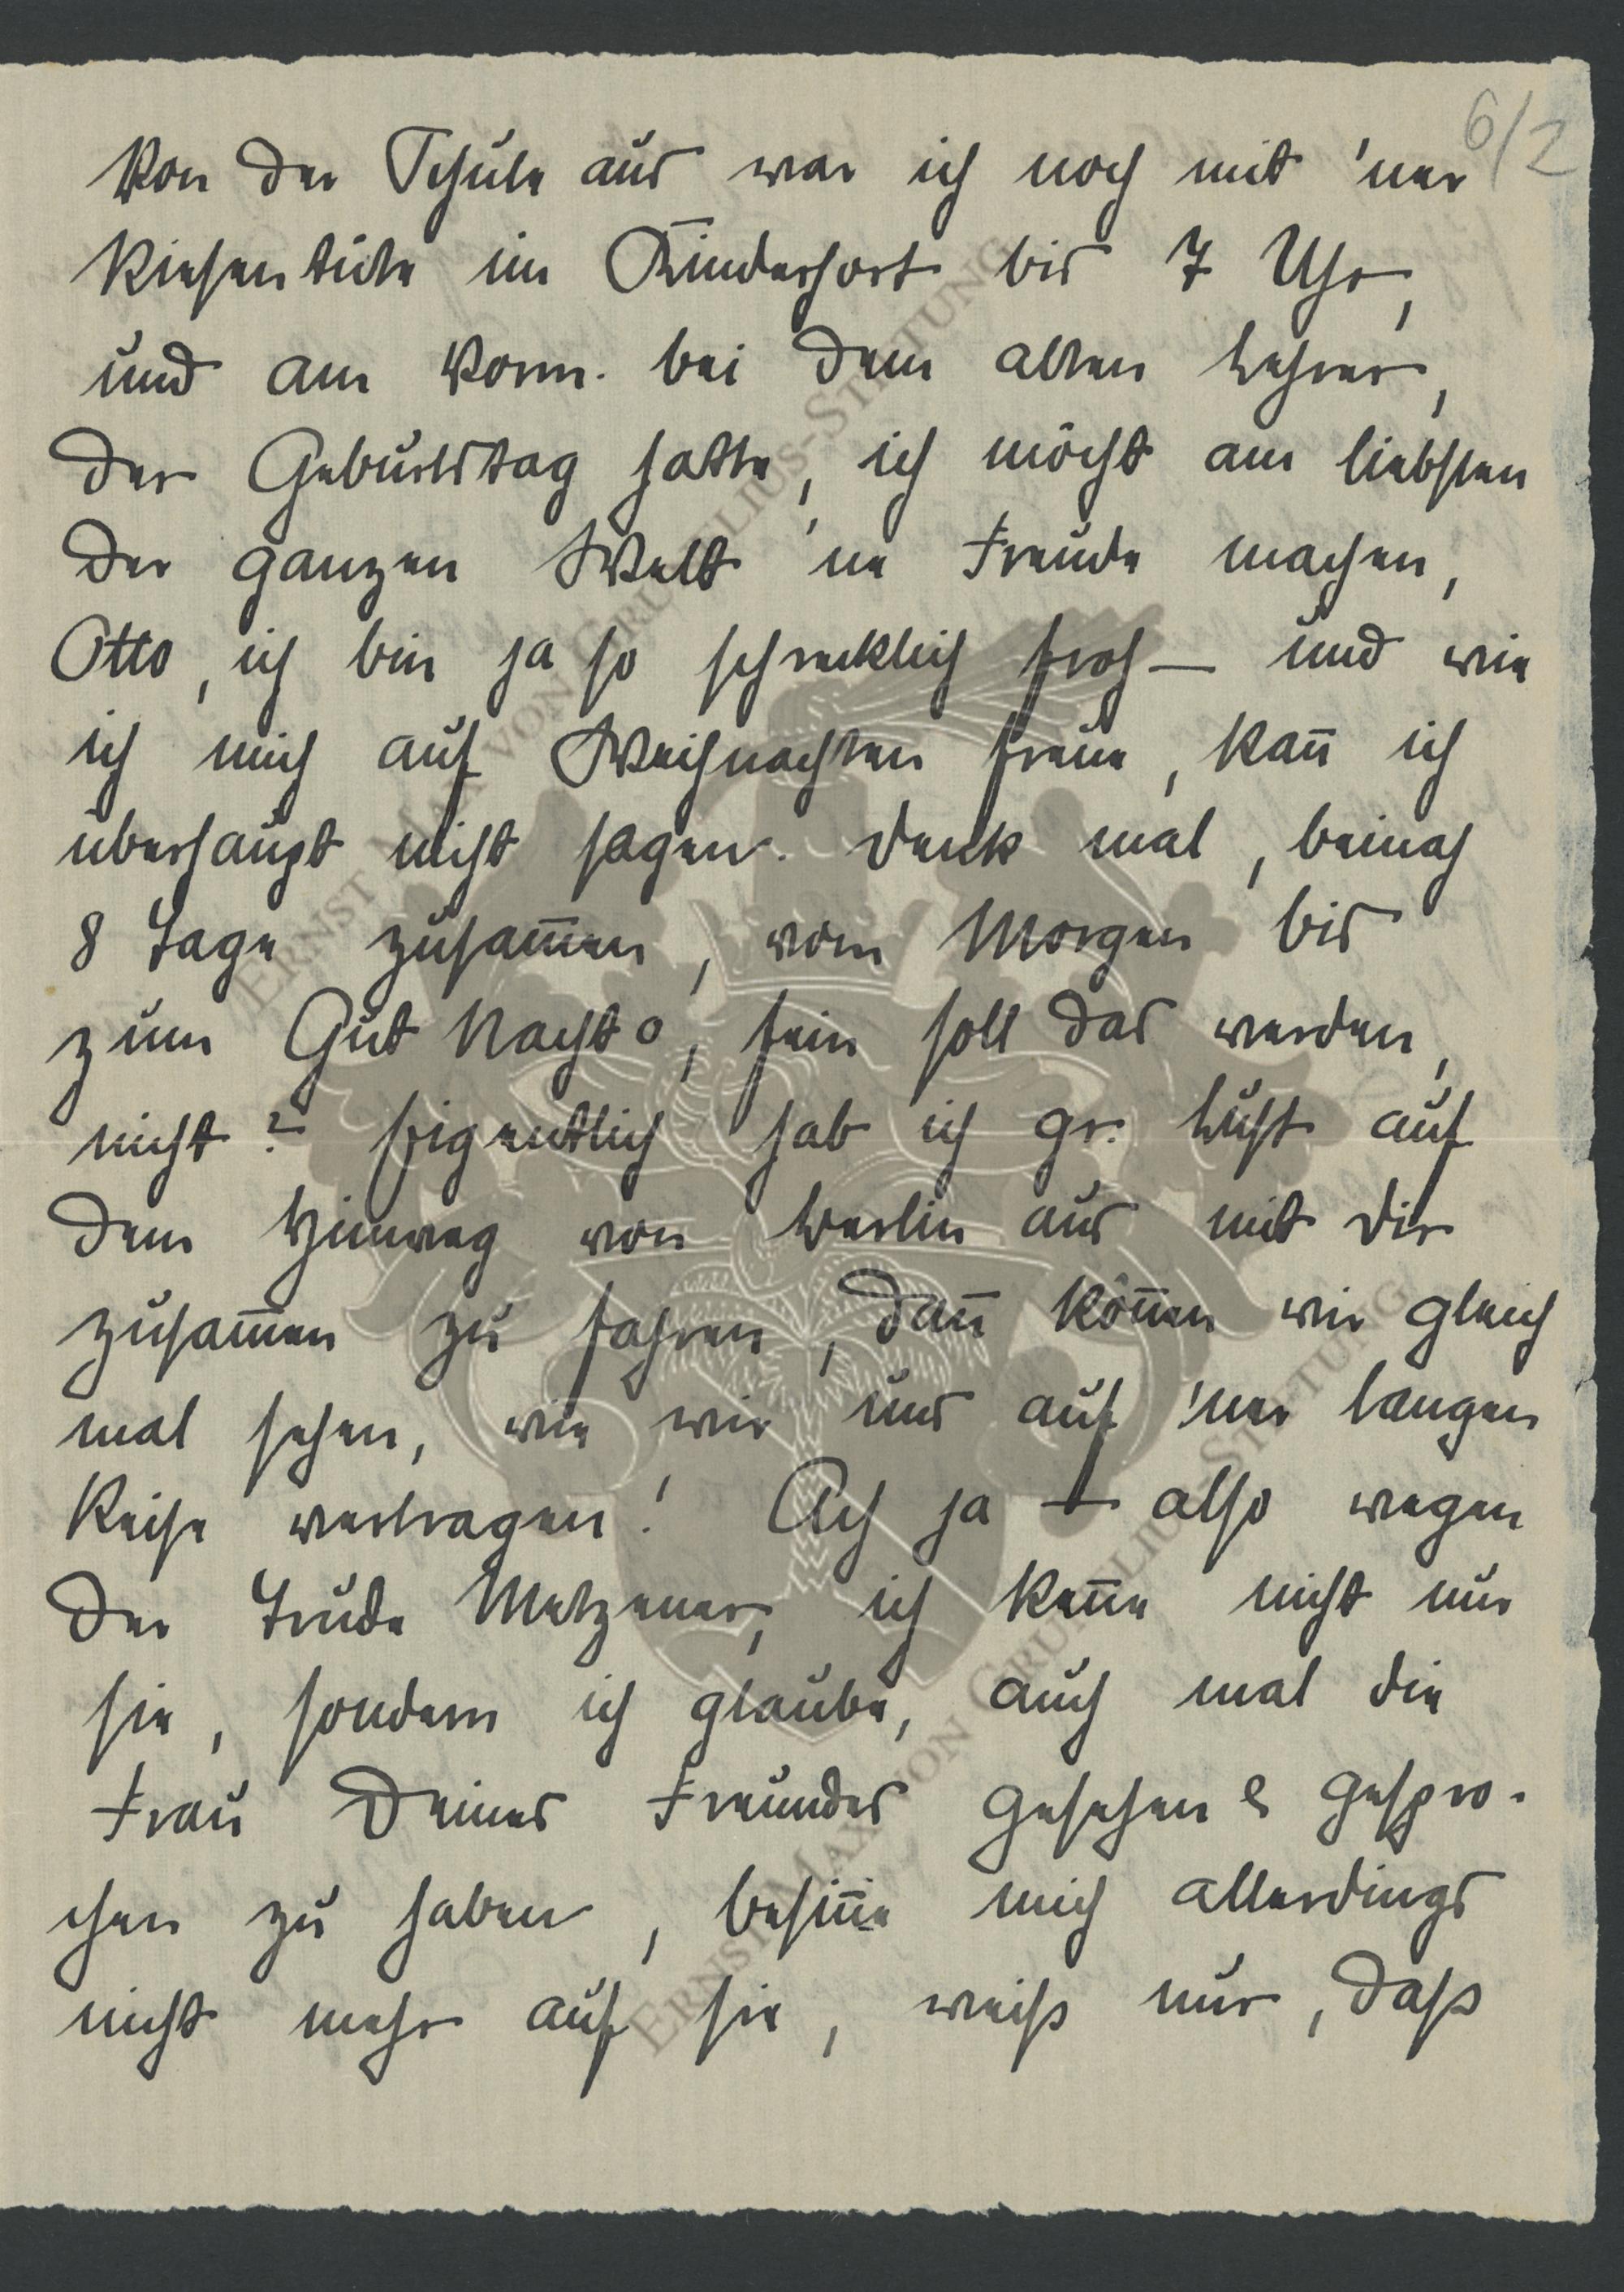 6/2
Von der Schule aus war ich noch mit 'ner
Riesentüte im Kinderhort bis 7 Uhr,
und am Vorm. bei dem alten Lehrer,
der Geburtstag hatte, ich möcht am liebsten
der ganzen Welt 'ne Freude machen,
Otto, ich bin ja so schrecklich froh — und wie
ich mich auf Weihnachten freue, kan̄ ich
überhaupt nicht sagen. Denk mal, beinah
8 Tage zusam̄en, vom Morgen bis
zum Gut Nacht o, fein soll das werden,
nicht? Eigentlich hab ich gr. Lust auf
dem Hinweg von Berlin aus mit Dir
zusam̄en zu fahren, dan̄ kön̄en wir gleich
mal sehen, wie wir uns auf 'ner langen
Reise vertragen! Ach ja — also wegen
der Trude Metzener, ich ken̄e nicht nur
sie, sondern ich glaube, auch mal die
Frau Deines Freundes gesehen & gespro-
chen zu haben, besin̄e mich allerdings
nicht mehr auf sie, weiß nur, daß
ERNST MAX VON GRUNELIUS-STIFTUNG
ERNST MAX VON GRUNELIUS-STIFTUNG